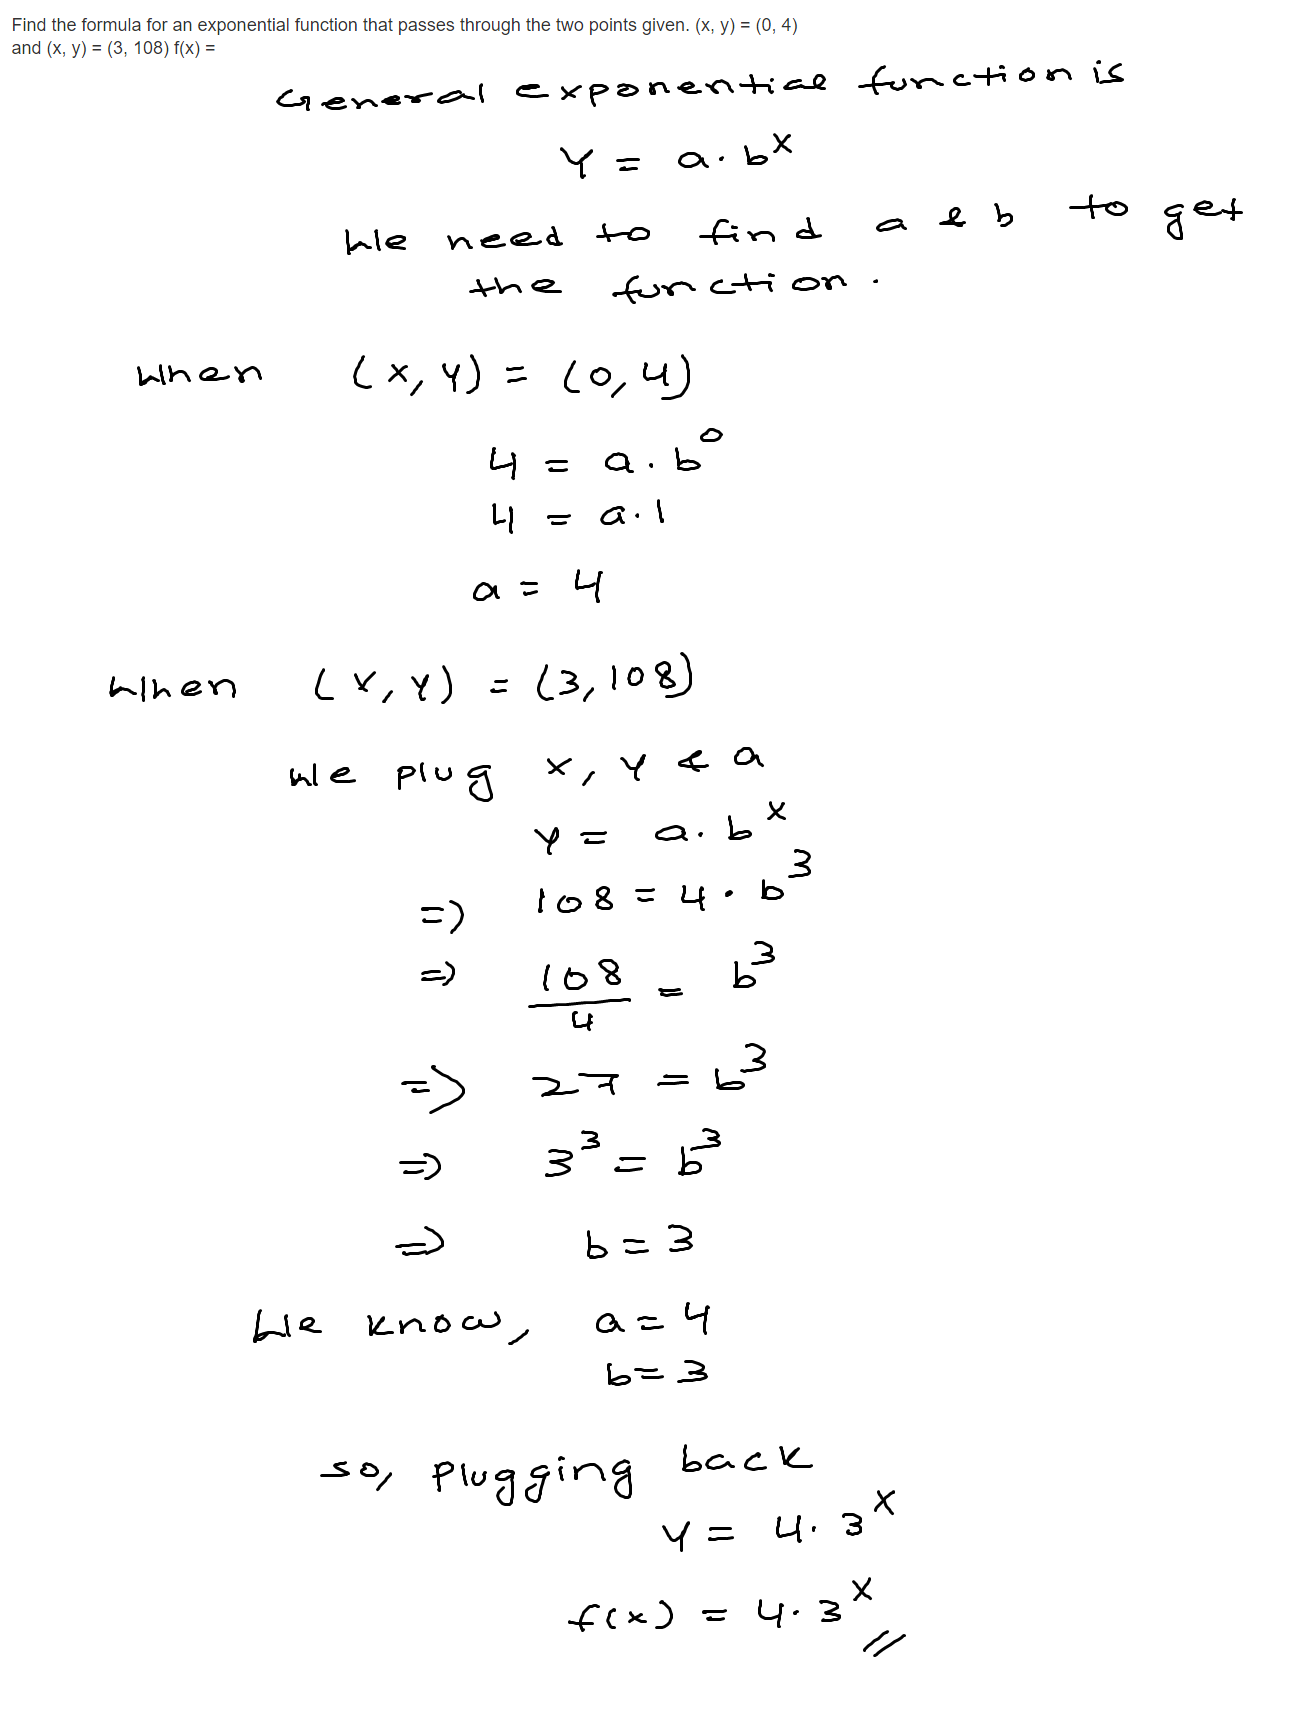 Find the formula for an exponential function that passes through the two points given. (x, y) = (0, 4)
and (x, y) = (3, 108) f(x) =
General exponential function is
Y = a. b^x
We need to find a & b to get
the function.
When (x, y) = (0, 4)
4 = a. b^0
4 = a. 1
a = 4
When (x, y) = (3, 108)
We plug x, y & a
y = a. b^x
=> 108 = 4 . b^3
=> 108/4 = b^3
=> 27 = b^3
=> 3^3 = b^3
=> b = 3
We know, a = 4
b = 3
so, plugging back
y = 4. 3^x
f(x) = 4. 3^x //